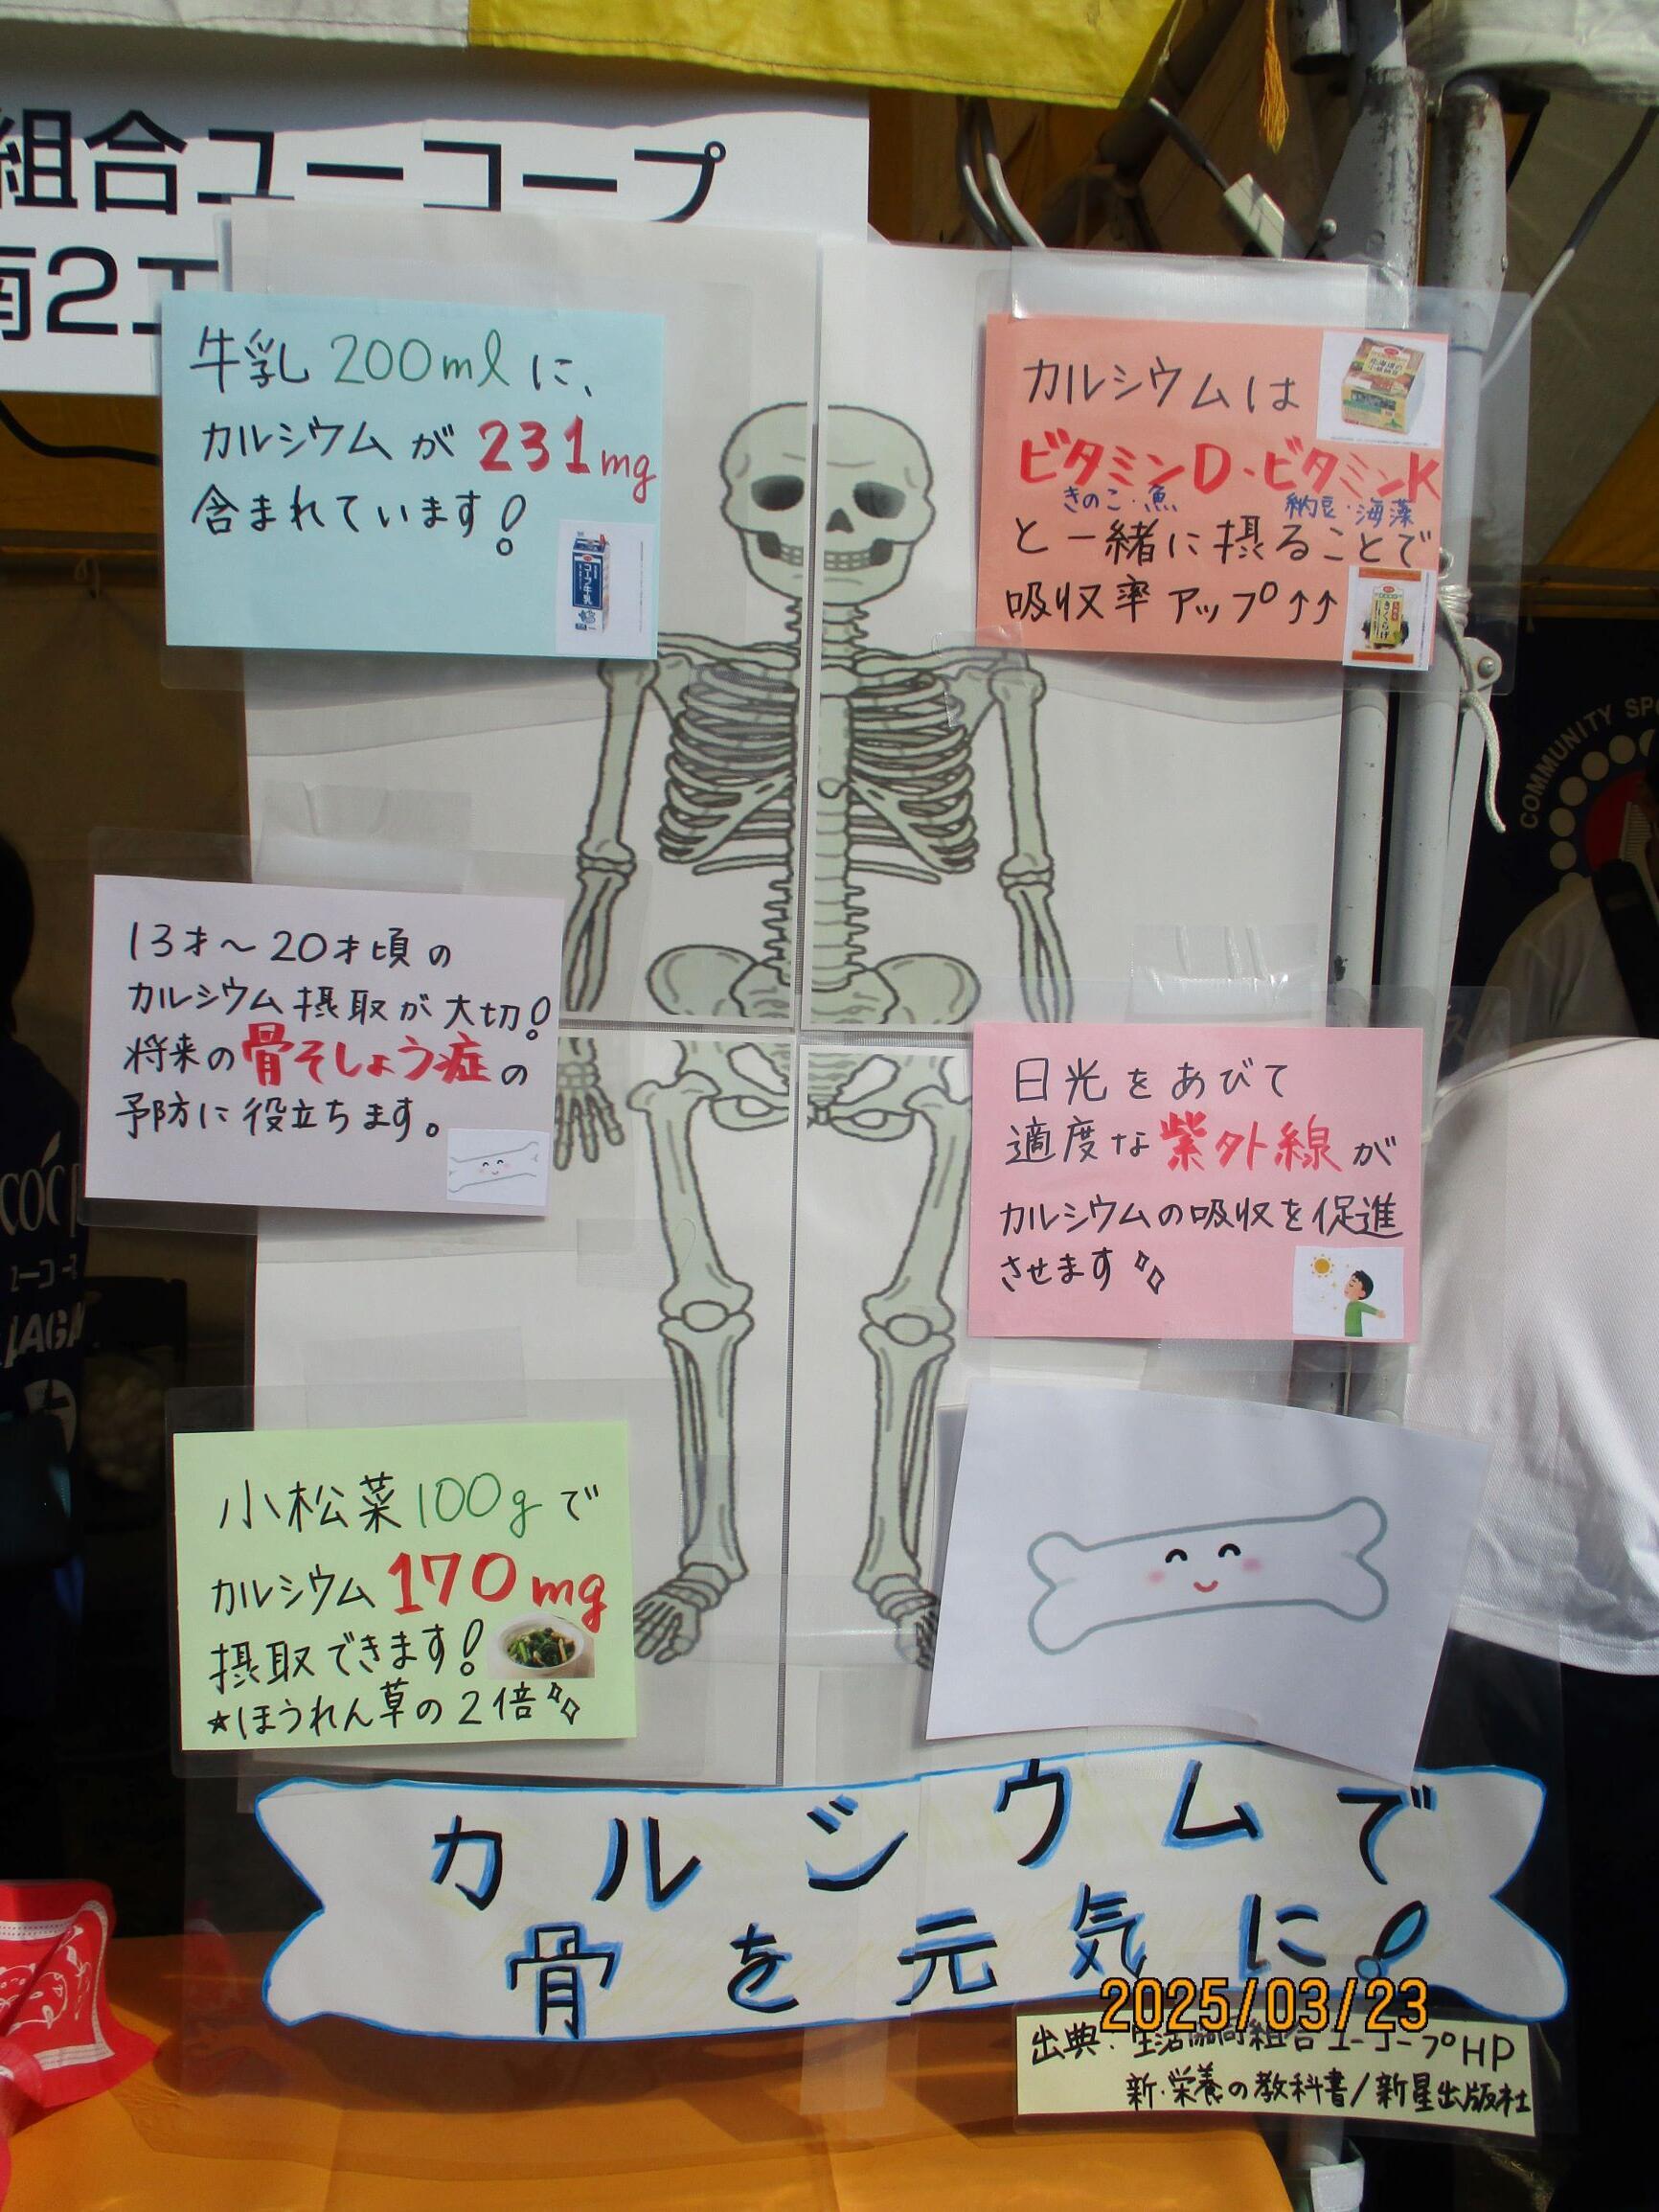 組合ユーコープ
南2エ
牛乳 200mlに、
カルシウムが 231mg
含まれています!
コープ牛乳
カルシウムは
ビタミンD・ビタミンK
きのこ・魚 納豆・海藻
と一緒に摂ることで
吸収率アップ↑↑
きくらげ
COMMUNITY SPO
13才〜20才頃の
カルシウム摂取が大切!
将来の骨そしょう症の
予防に役立ちます。
日光をあびて
適度な紫外線が
カルシウムの吸収を促進
させます
小松菜100gで
カルシウム170mg
摂取できます!
★ほうれん草の2倍
カルシウムで
骨を元気に!
2025/03/23
出典:生活協同組合ユーコープHP
新・栄養の教科書/新星出版社